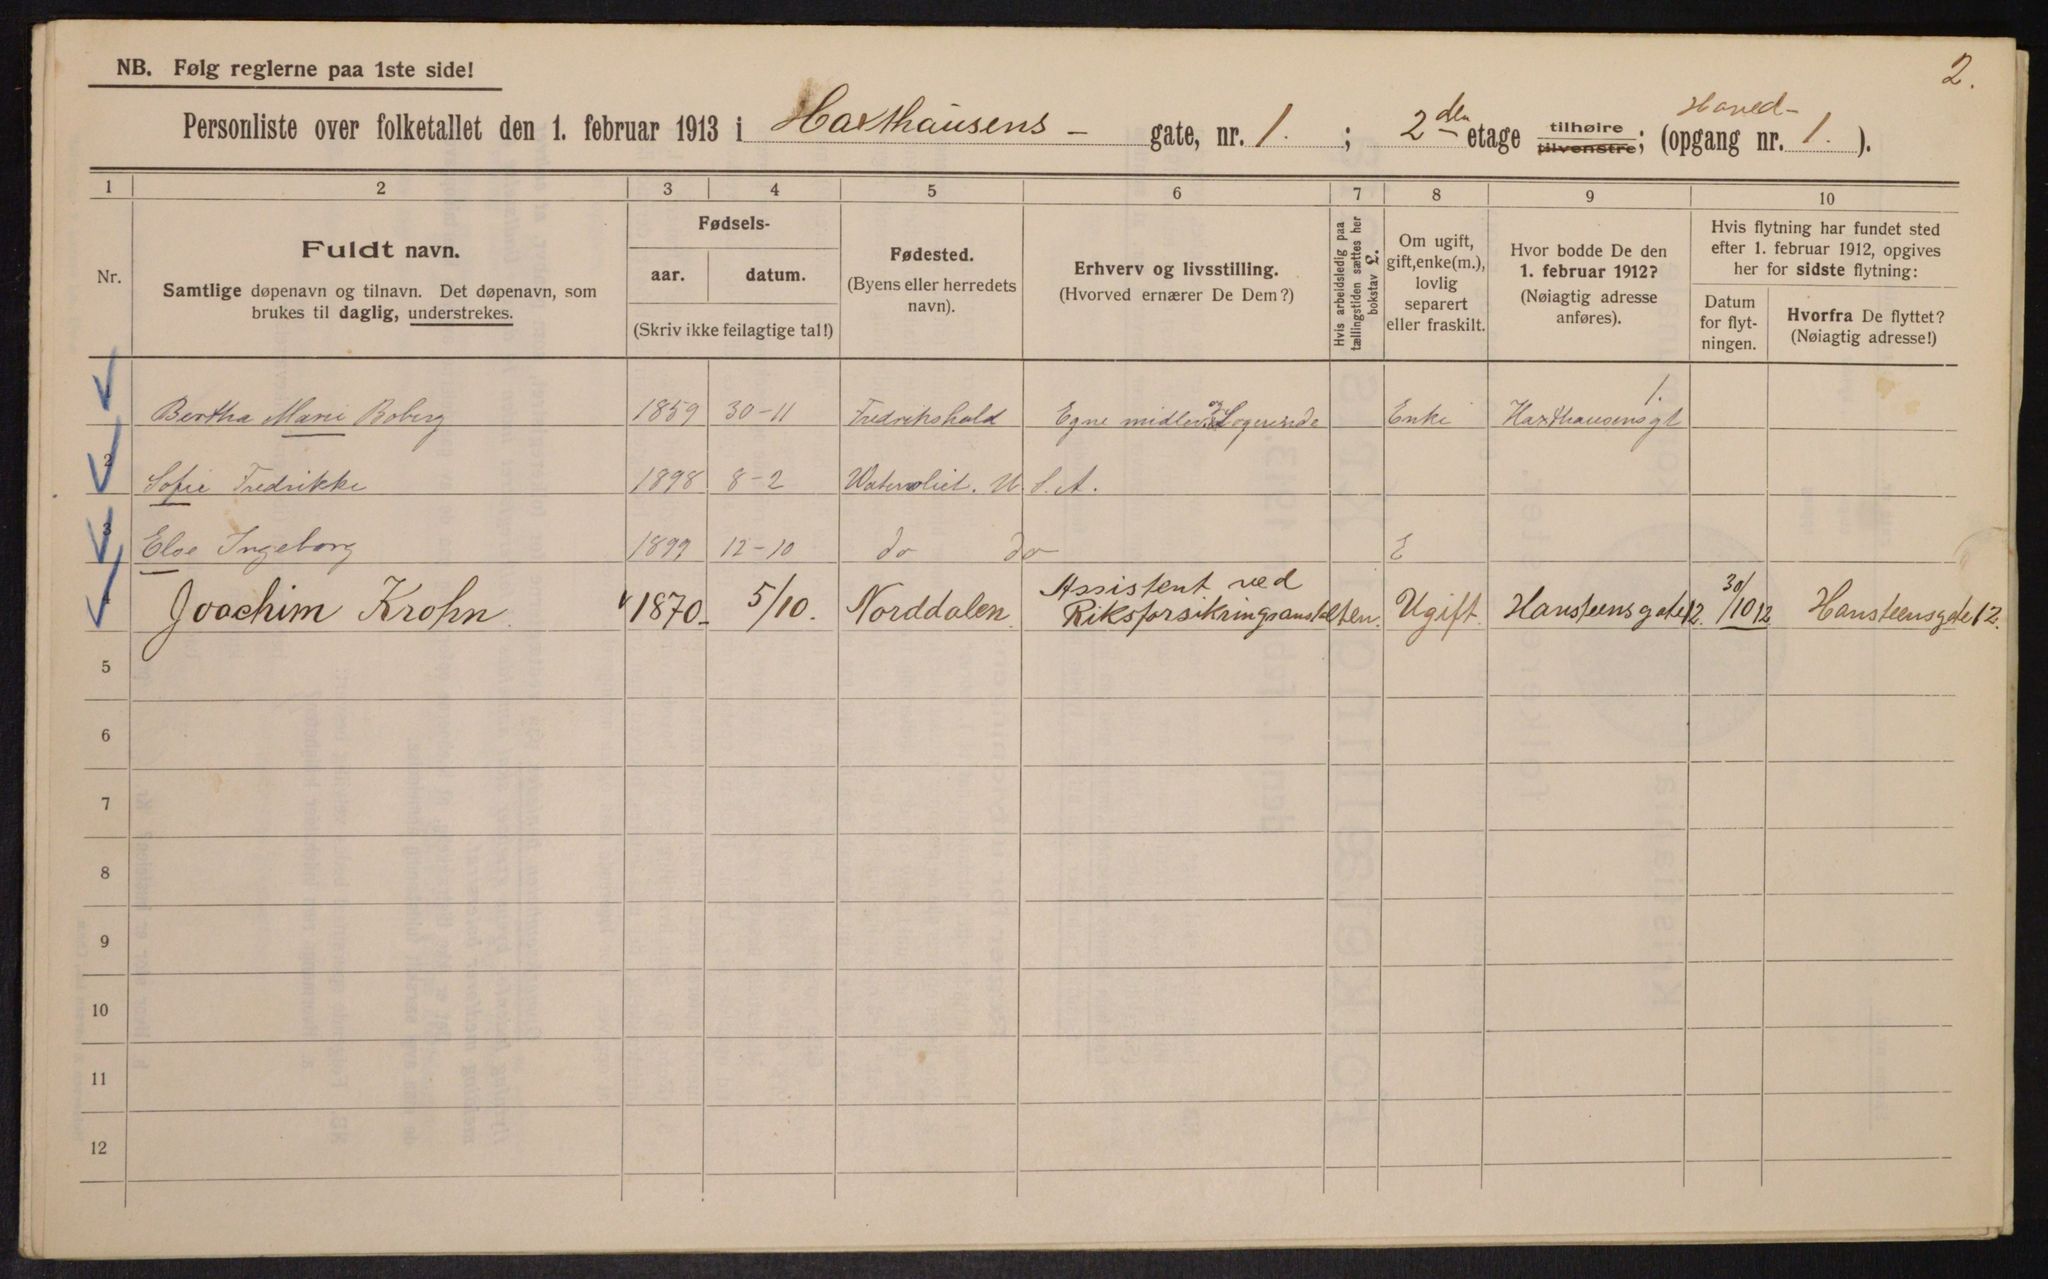 2.
NB. Følg reglerne paa 1ste side!
Personliste over folketallet den 1. februar 1913 i Haxthausens - gate, nr. 1. ; 2den etage tilhøire tilvenstre; (Hoved- opgang nr. 1. ).
1 2 3 4 5 6 7 8 9 10
Nr.
Fuldt navn.
Samtlige døpenavn og tilnavn. Det døpenavn, som
brukes til daglig, understrekes.
Fødsels-
aar. datum.
(Skriv ikke feilagtige tal!)
Fødested.
(Byens eller herredets
navn).
Erhverv og livsstilling.
(Hvorved ernærer De Dem?)
Hvis arbeidsledig paa
tællingstiden sættes her
bokstav L.
Om ugift,
gift, enke(m.),
lovlig
separert
eller fraskilt.
Hvor bodde De den
1. februar 1912?
(Nøiagtig adresse
anføres).
Hvis flytning har fundet sted
efter 1. februar 1912, opgives
her for sidste flytning:
Datum
for flyt-
ningen.
Hvorfra De flyttet?
(Nøiagtig adresse!)
1 Bertha Marie Boberg 1859 30-11 Fredrikshald Egne midler og Logerende Enke Haxthausensgt 1.
2 Sofie Fredrikke 1898 8-2 Watervliet. U. S. A.
3 Eloe Ingeborg 1899 12-10 do do E
4 Joachim Krohn. 1870- 5/10. Norddalen. Assistent ved
Riksforsikringsanstalten. Ugift. Hansteensgate 12. 30/10 12 Hansteensgate 12.
5
6
7
8
9
10
11
12